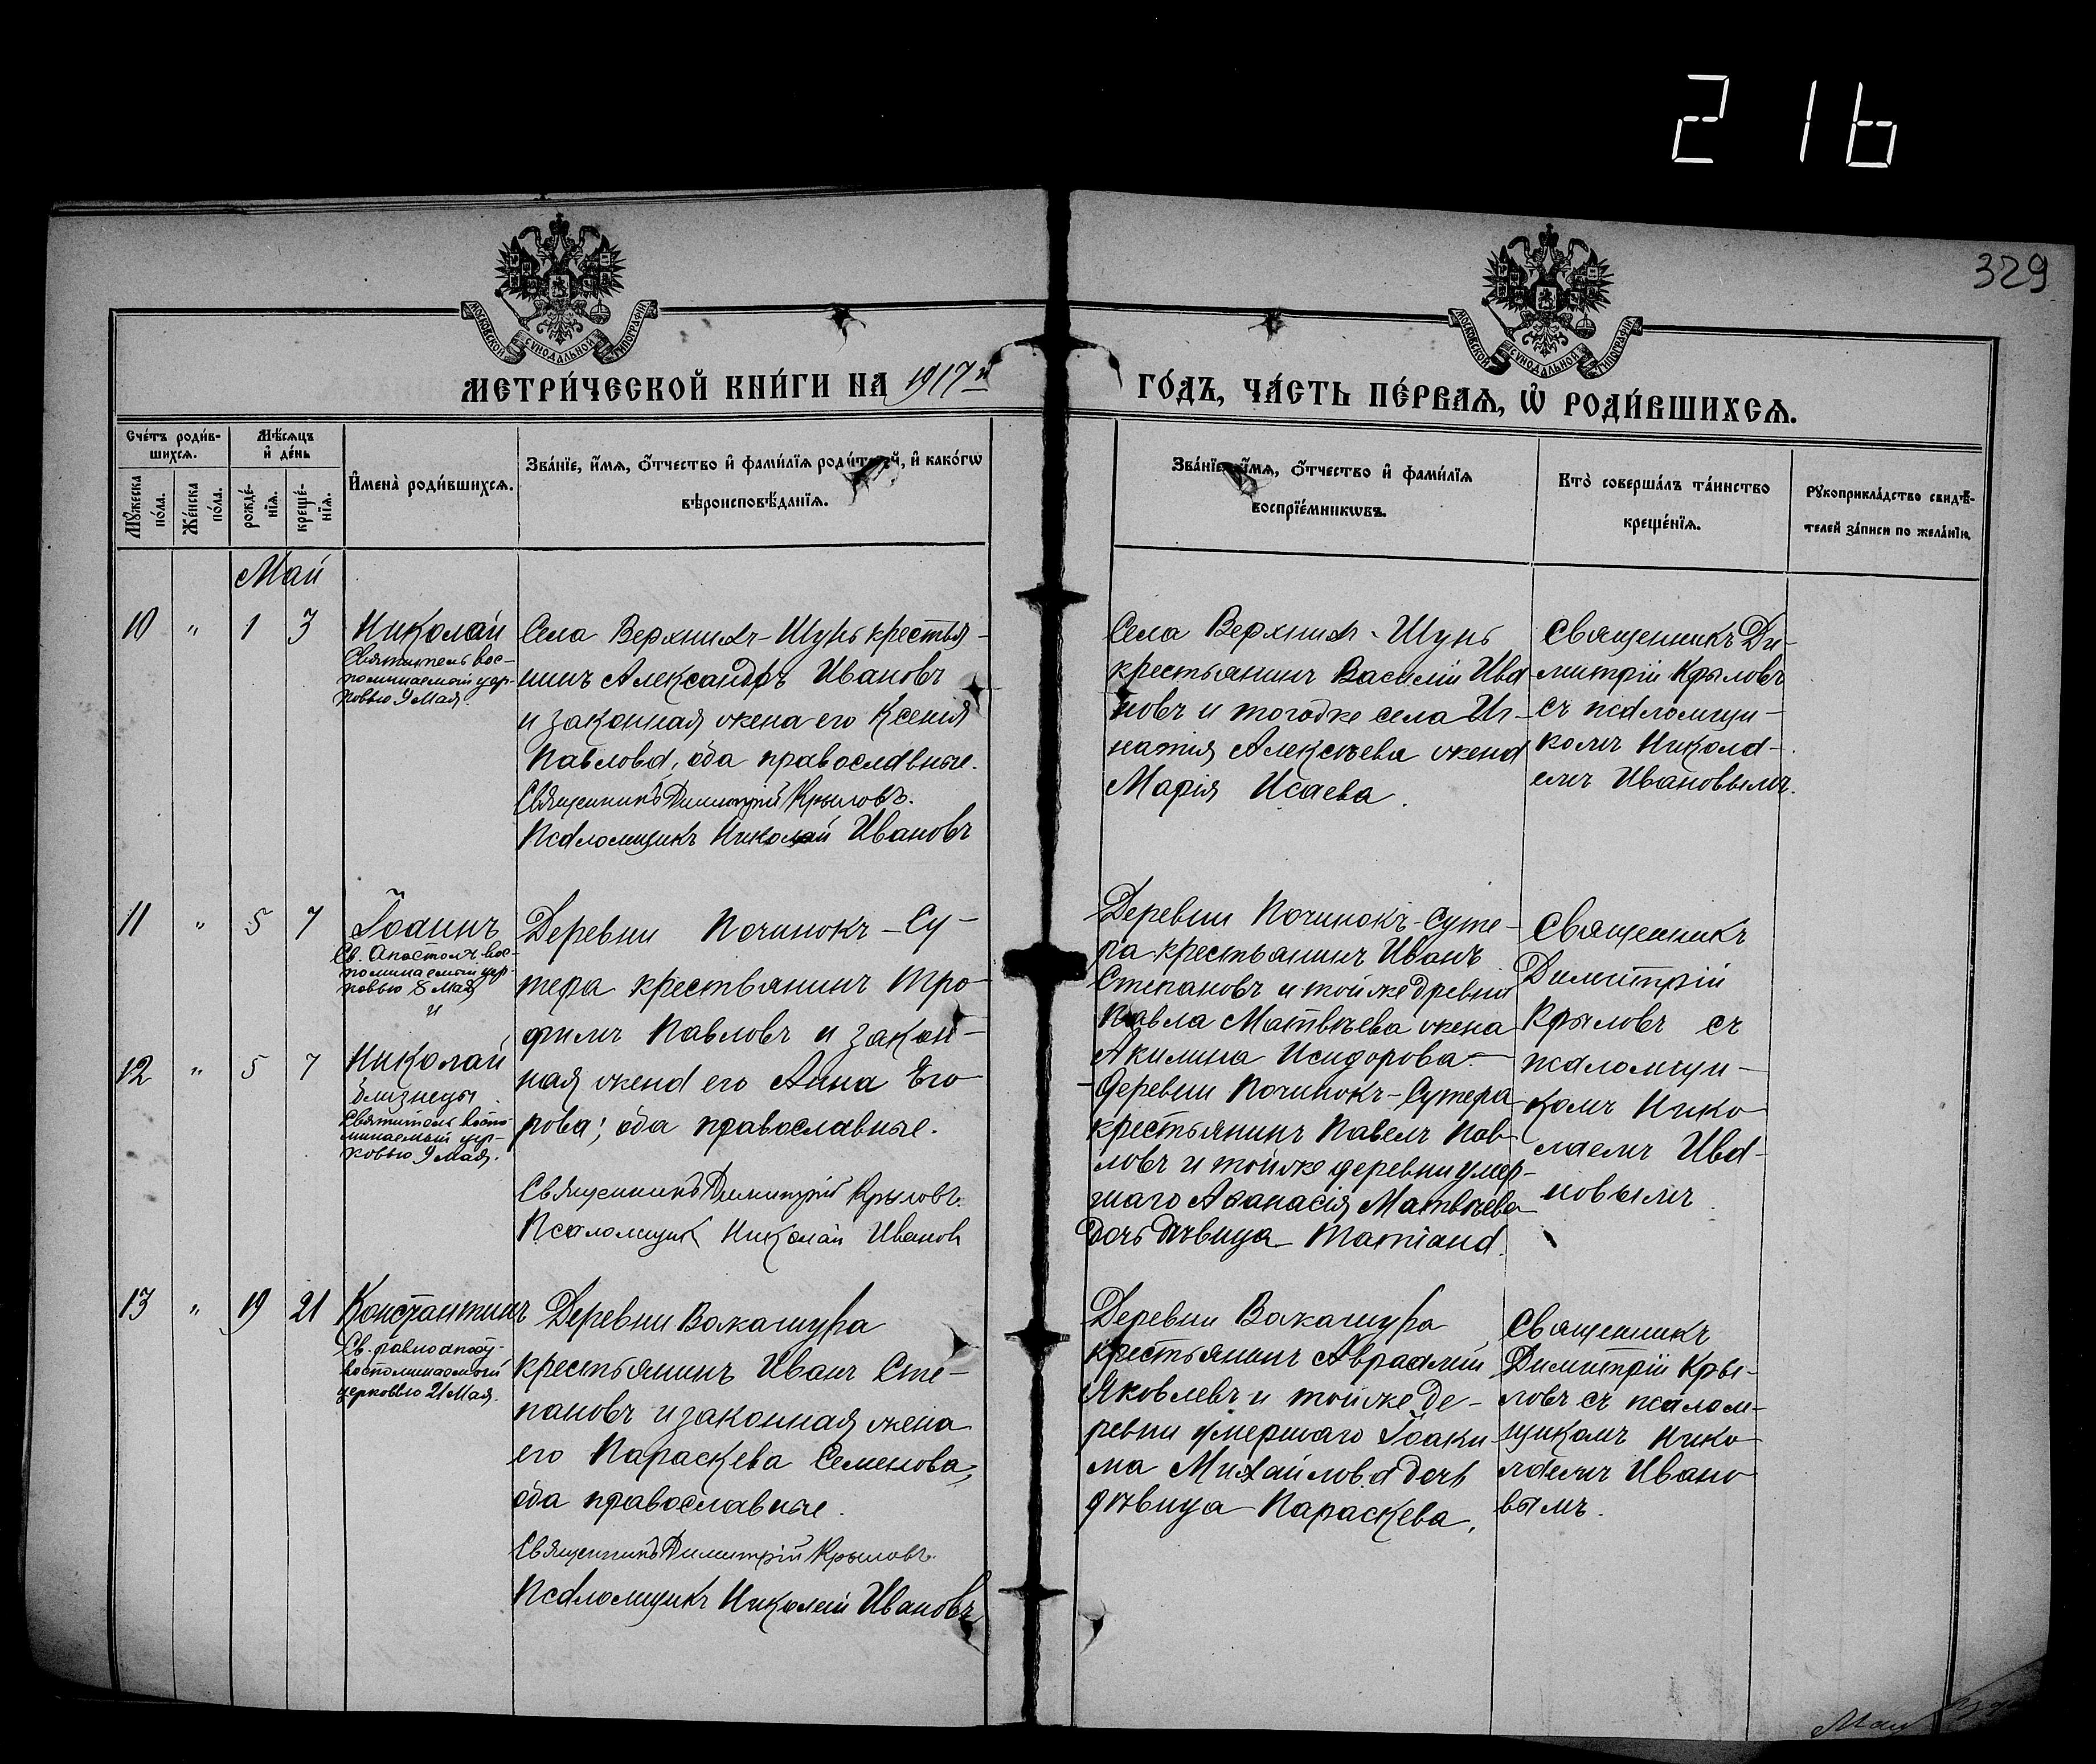 216
329
МОСКОВСКОЙ СУНОДАЛЬНОЙ ТИПОГРАФІИ
МОСКОВСКОЙ СУНОДАЛЬНОЙ ТИПОГРАФІИ
МЕТРИ́ЧЕСКОЙ КНИ́ГИ НА 1917й
ГО́ДЪ, ЧА́СТЬ ПЕ́РВАѦ, Ѽ РОДИ́ВШИХСѦ.
Сче́тъ роди́в-
шихсѧ.
Мѣ́сѧцъ
и҆ де́нь
Мꙋ́жеска
по́ла.
Же́нска
по́ла.
рожде́-
нїѧ.
креще́-
нїѧ.
И҆мена̀ роди́вшихсѧ.
Зва́нїе, и҆́мѧ, ѻ҆́тчество и҆ фами́лїѧ роди́телей, и҆ како́гѡ
вѣроисповѣ́данїѧ.
Зва́нїе, и҆́мѧ, ѻ҆́тчество и҆ фами́лїѧ
воспрїе́мникѡвъ.
Кто̀ соверша́лъ та́инство
креще́нїѧ.
Рꙋкоприкла́дство свидѣ́-
телей за́писи по жела́нїю.
Май
10 " 1 3
Николай
Святитель вос-
поминаемый цер-
ковью 9 Мая.
Села Верхнихъ-Шунь крестья-
нинъ Александръ Ивановъ
и законная жена его Ксенія
Павлова, оба православные.
Священникъ Димитрій Крыловъ.
Псаломщикъ Николай Ивановъ
Села Верхнихъ-Шунь
крестьянинъ Василій Ива
новъ и тогоже села Иг-
натія Алексѣева жена
Марія Исаева.
Священникъ Ди-
митрій Крыловъ
съ псаломщи-
комъ Никола-
емъ Ивановымъ.
11 " 5 7
Іоаннъ
Св. Апостолъ вос-
поминаемый цер-
ковью 8 Мая
и
12 " 5 7
Николай
близнецы
Святитель воспо-
минаемый цер-
ковью 9 мая.
Деревни Починокъ-Су-
тера крестьянинъ Тро-
фимъ Павловъ и закон-
ная жена его Анна Его-
рова; оба православные.
Священникъ Димитрій Крыловъ.
Псаломщикъ Николай Ивановъ
Деревни Починокъ-Суте-
ра крестьянинъ Иванъ
Степановъ и тойже древни
Павла Матвѣева жена
Акилина Исидорова.
Деревни Починокъ-Сутера
крестьянинъ Павелъ Пав-
ловъ и тойже деревни умер-
шаго Аѳанасія Матвѣева
дочь дѣвица Татіана.
Священникъ
Димитрій
Крыловъ съ
псаломщи-
комъ Нико-
лаемъ Ива-
новымъ.
13 " 19 21
Константинъ
Св. равноапост.
воспоминаемый
церковью 21 Мая.
Деревни Вакашура
крестьянинъ Иванъ Сте-
пановъ и законная жена
его Параскева Семенова,
оба православные.
Священникъ Димитрій Крыловъ.
Псаломщикъ Николай Ивановъ
Деревни Вакашура
крестьянинъ Авраамій
Яковлевъ и тойже де-
ревни умершаго Іоаки
ма Михайлова дочь
дѣвица Параскева.
Священникъ
Димитрій Кры-
ловъ съ псалом-
щикомъ Нико-
лаемъ Ивано-
вымъ.